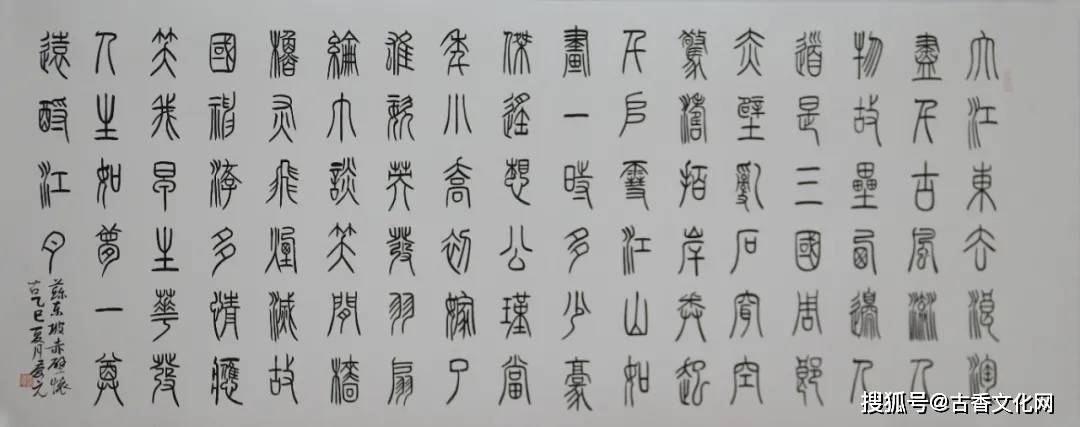 大江東去浪淘
盡千古風流人
物故壘西邊人
道是三國周郎
赤壁亂石穿空
驚濤拍岸卷起
千堆雪江山如
畫一時多少豪
傑遥想公瑾當
年小喬初嫁了
雄姿英發羽扇
綸巾談笑間檣
櫓灰飛煙滅故
國神游多情應
笑我早生華發
人生如夢一尊
還酹江月
蘇东坡赤壁懷
古乙巳夏月
搜狐号@古香文化网